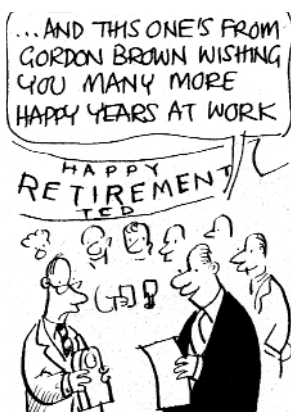 ...AND THIS ONE'S FROM
GORDON BROWN WISHING
YOU MANY MORE
HAPPY YEARS AT WORK
HAPPY
RETIREMENT
TED